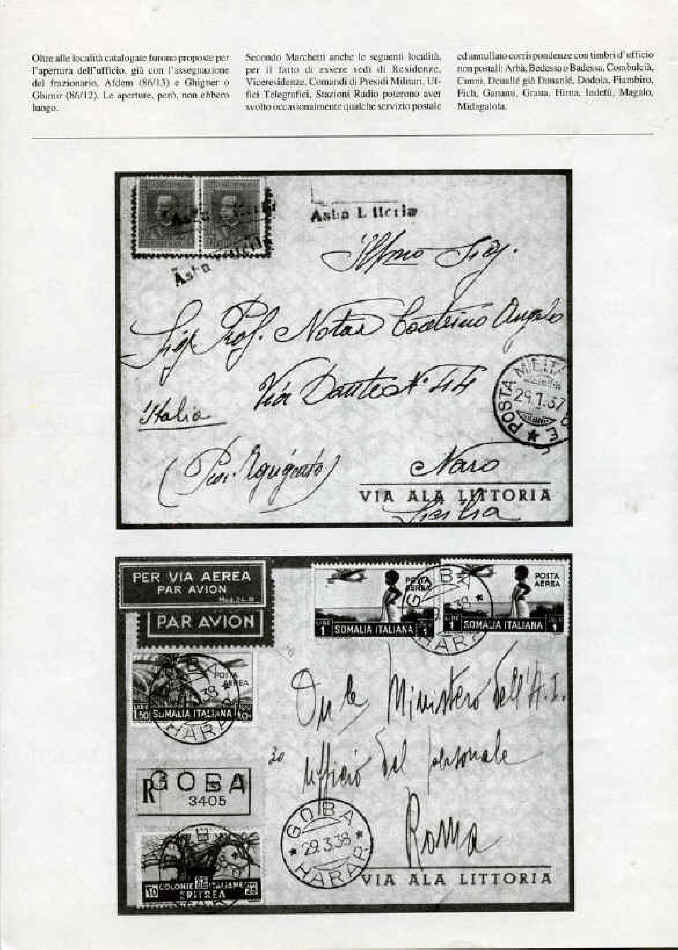 Oltre alle località catalogate furono proposte per
l'apertura dell'ufficio, già con l'assegnazione
del frazionario, Afdem (86/13) e Ghigner o
Ghinir (86/12). Le aperture, però, non ebbero
luogo.
Secondo Marchetti anche le seguenti località,
per il fatto di essere sedi di Residenze,
Viceresidenze, Comandi di Presidi Militari, Uf-
fici Telegrafici, Stazioni Radio poterono aver
svolto occasionalmente qualche servizio postale
ed annullato corrispondenze con timbri d'ufficio
non postali: Arba, Bedesso o Badessa, Combulcià,
Cunni, Deualle già Dananlé, Dodola, Fiambiro,
Fich, Gananu, Grana, Hirna, Indetù, Magalo,
Midagalola.
Asba Littoria
Asba Littoria
Ill.mo Sig.
Sig. Prof. Notar Costeino Angelo
Via Dante N. 44
Italia
POSTA MILITA
29.1.37
E
(Prov. Agrigento)
Naro
VIA ALA LITTORIA
Sicilia
PER VIA AEREA
PAR AVION
PAR AVION
POSTA
AEREA
LIRE 1 SOMALIA ITALIANA LIRE 1
GOBA
HARAR
POSTA
AEREA
LIRE 1 SOMALIA ITALIANA LIRE 1
POSTA
AEREA
SOMALIA ITALIANA
GOBA
HARAR
On le Ministero dell'A.I.
Ufficio del personale
Roma
R GOBA
3405
GOBA
29.3.38
HARAR
10 COLONIE ITALIANE
ERITREA
VIA ALA LITTORIA